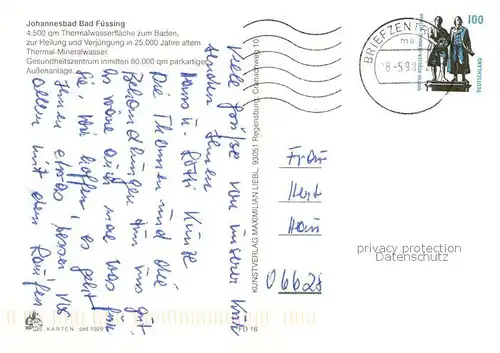 Johannesbad Bad Füssing
4.500 qm Thermalwasserfläche zum Baden,
zur Heilung und Verjüngung in 25.000 Jahre altem
Thermal-Mineralwasser.
Gesundheitszentrum inmitten 80.000 qm parkartiger
Außenanlage.
Viele Grüße von unserer Kur
senden Ihnen
Hans u. Rotti Kunze
Die Thermen und die
Behandlungen tun uns gut
Es wäre auch mal was für
Sie, wir hoffen, es geht
Ihnen etwas besser
allem mit dem
KUNSTVERLAG MAXIMILIAN LIEBL, 93051 Regensburg,
BRIEFZENTRUM
100
DEUTSCHLAND
Frau
06628
privacy protection
Datenschutz
KARTEN seit 1929
FD 16